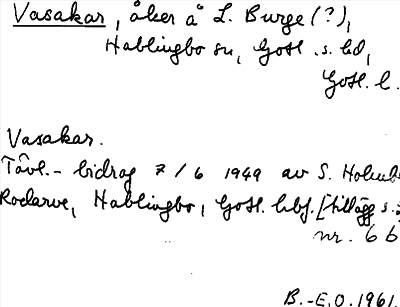 Vasakar, åker å L. Burge (?),
Hablingbo sn, Gotl. s. hd,
Gotl. l.
Vasakar.
Tävl.- bidrag 7/6 1949 av S.
Rodarve, Hablingbo, Gotl. [tillägg s.
nr. 6 b
B.-E.O. 1961.